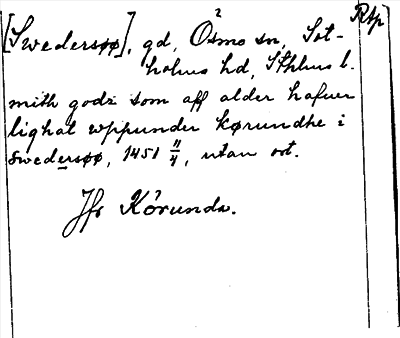 Rtp
[Swedersøø], gd, Ösmo sn, Sot-
holms hd, Sthlms l.
mith godz som aff alder hafuer
lighat vppunder kørundhe i
swedersøø, 1451 11/4, utan ort.
Jfr Körunda.